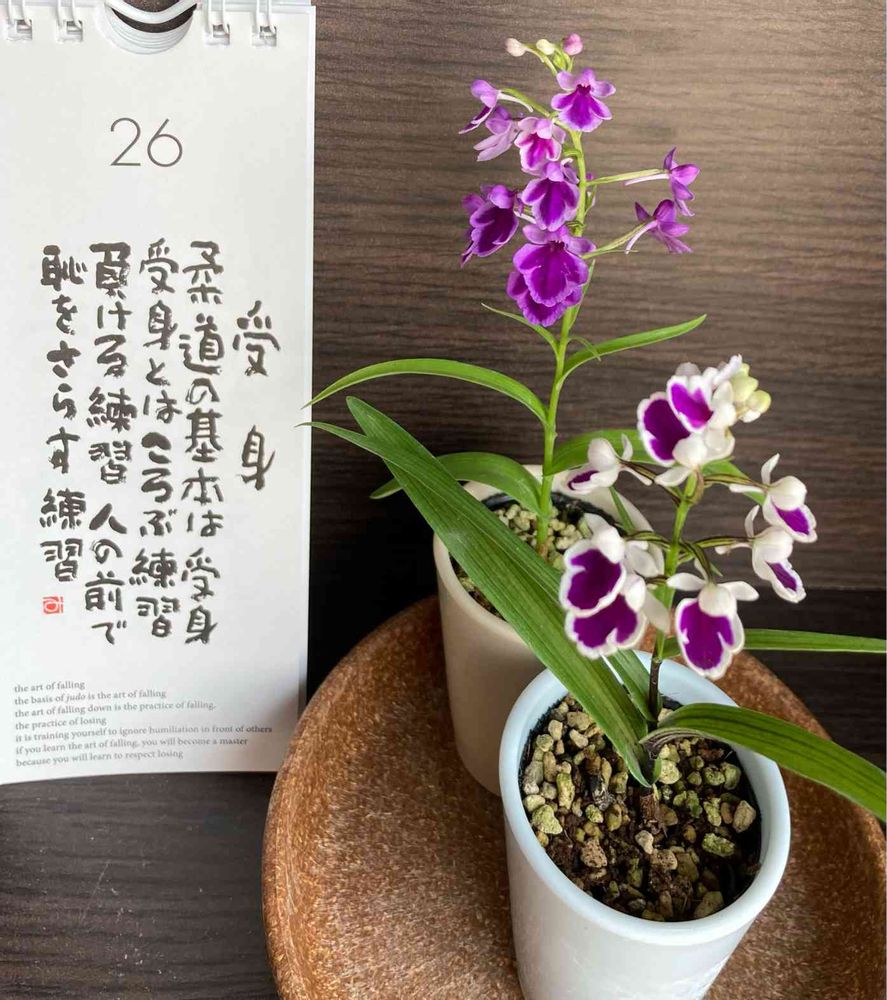 26
受身
柔道の基本は 受身
受身とは ころぶ練習
負ける練習 人の前で
恥をさらす 練習
the art of falling
the basis of judo is the art of falling
the art of falling down is the practice of falling.
the practice of losing
it is training yourself to ignore humiliation in front of others
if you learn the art of falling, you will become a master
because you will learn to respect losing